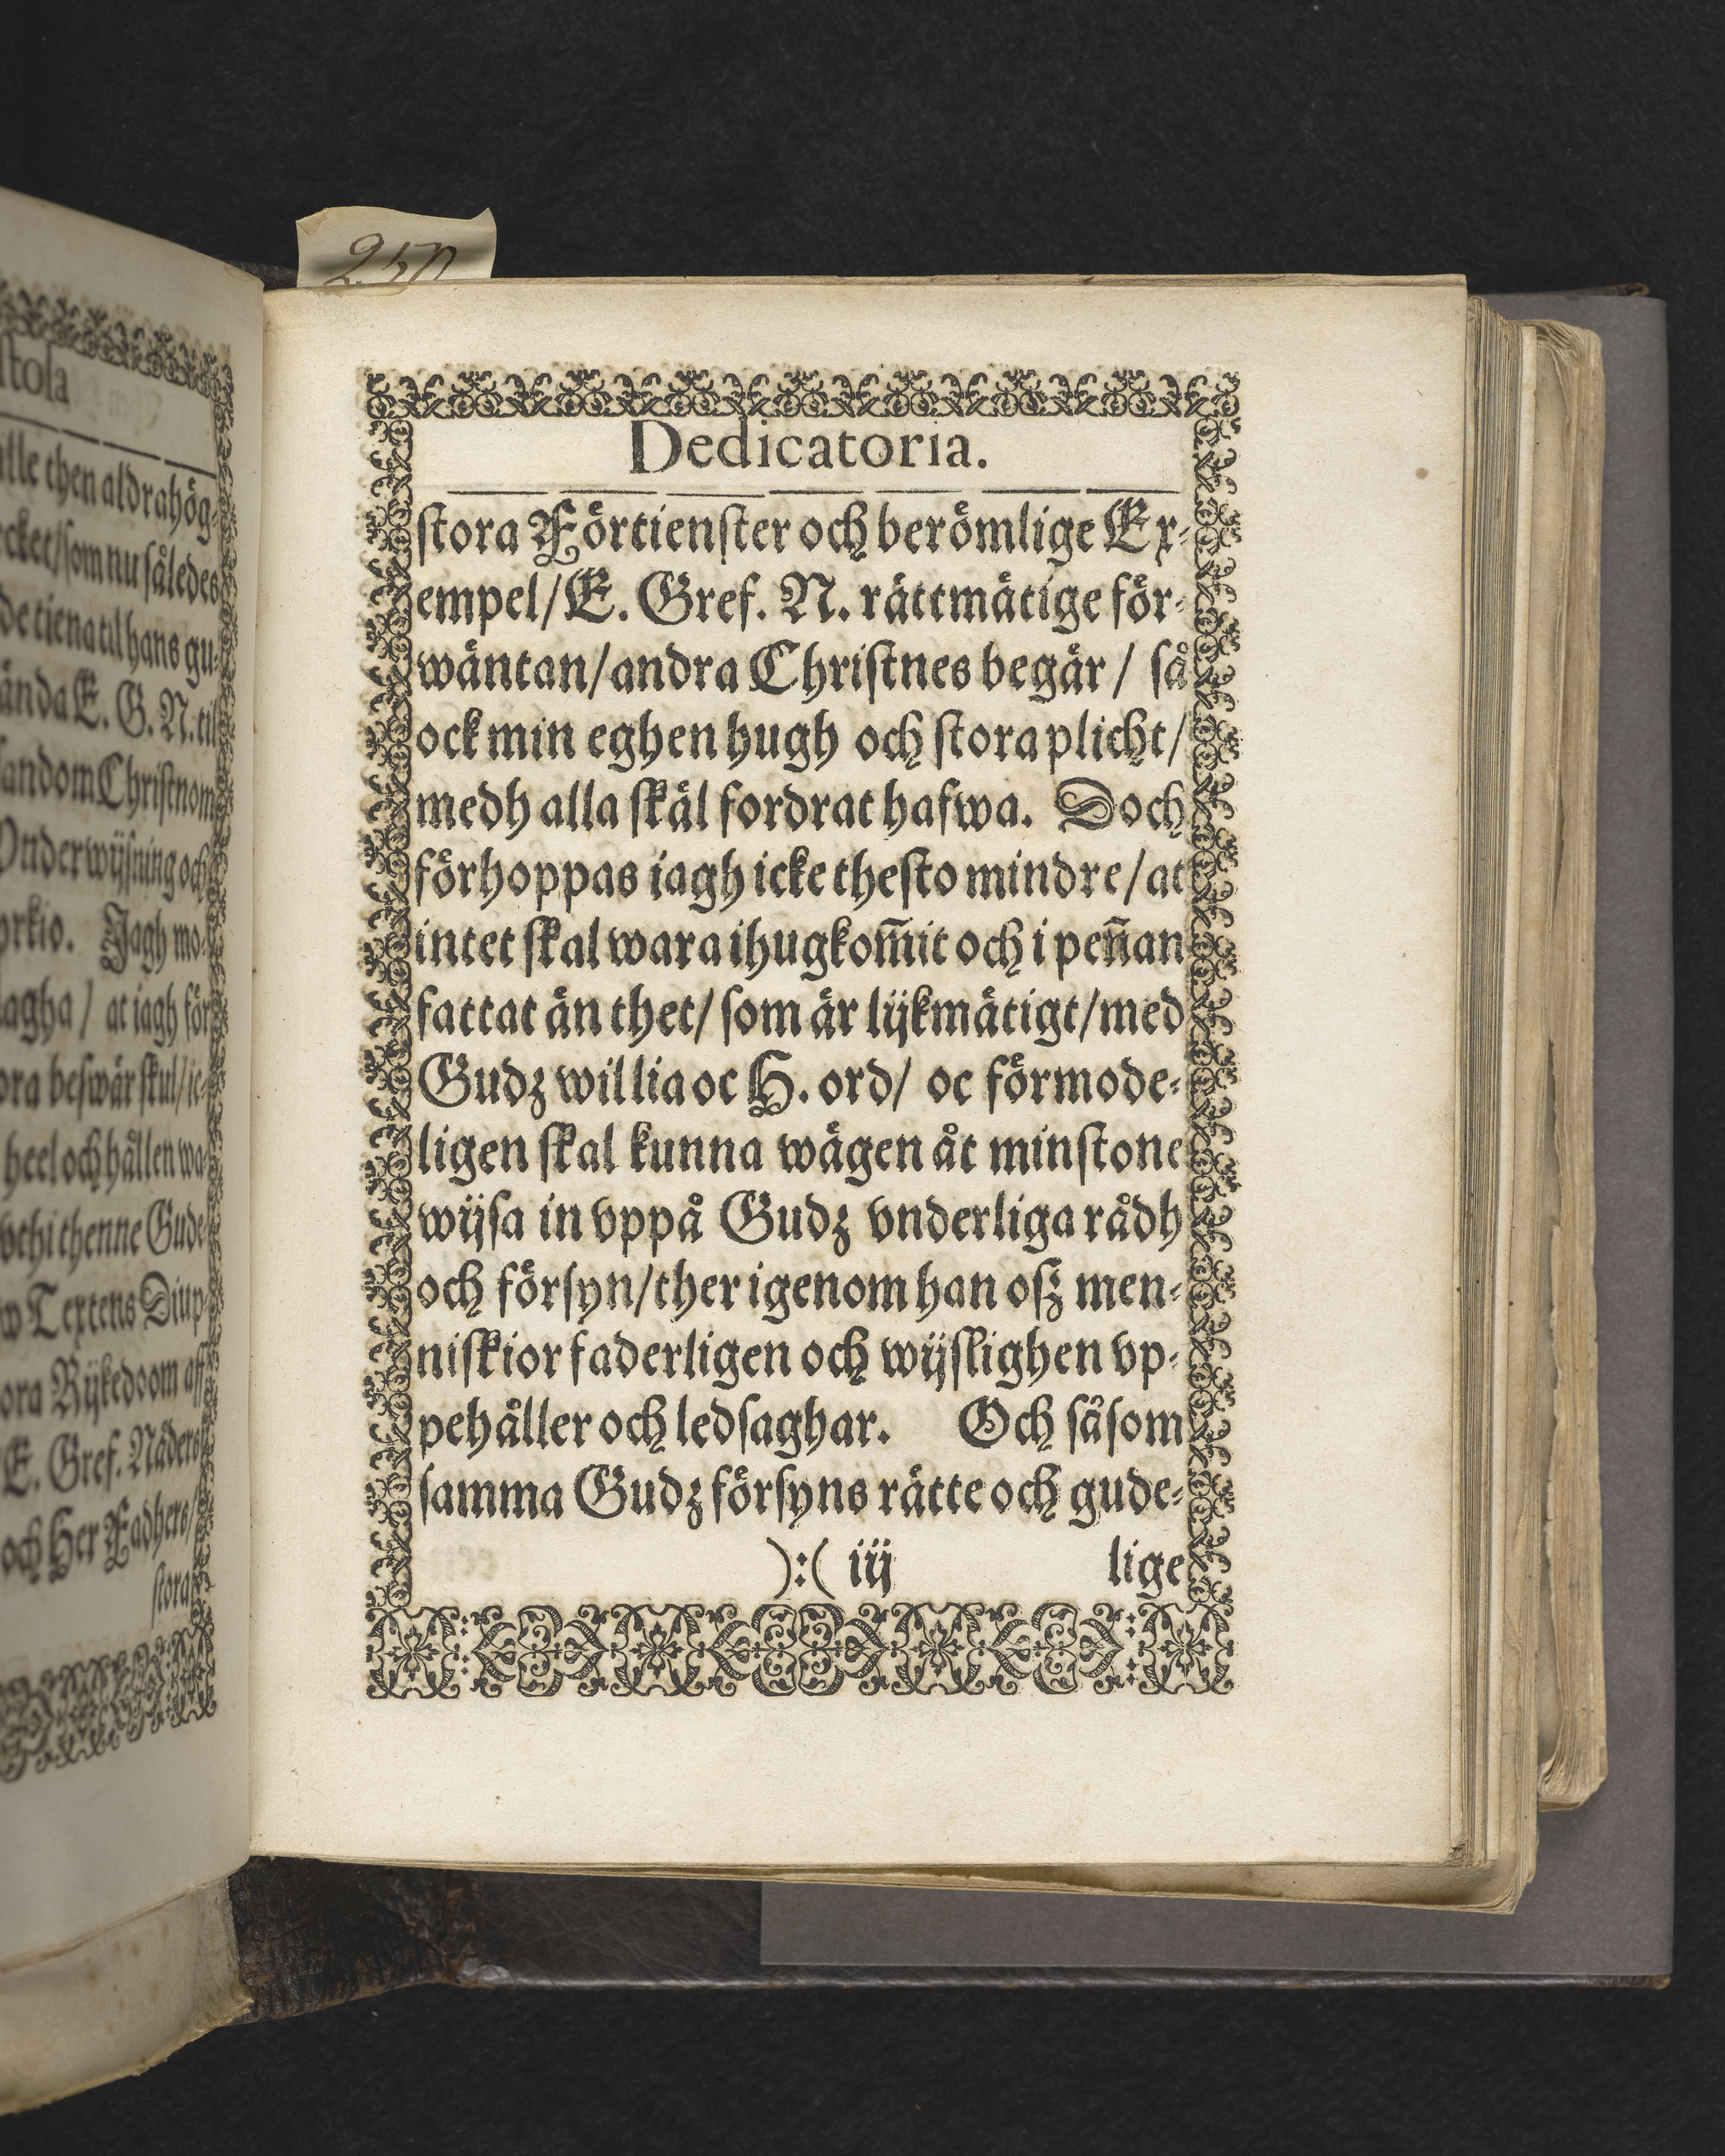 250
stola
then aldrahög-
som nu således
tiena til hans gu-
E. G. N. til
Christnom
Vnderwijsning och
Jagh mo-
at iagh för
beswär skul/ ic-
heel och hållen wa-
vthi thenne Gude-
Textens Diup-
Rijkedoom aff
E. Gref. Nåders
och Her Fadhers/
stora
Dedicatoria.
stora Förtienster och berömlige Ex-
empel/ E. Gref. N. rättmätige för-
wäntan/ andra Christnes begär/ så
ock min eghen hugh och stora plicht/
medh alla skäl fordrat hafwa. Doch
förhoppas iagh icke thesto mindre/ at
intet skal wara ihugkom̅it och i pen̅an
fattat än thet/ som är lijkmätigt/ med
Gudz willia oc H. ord/ oc förmode-
ligen skal kunna wägen åt minstone
wijsa in vppå Gudz vnderliga rådh
och försyn/ ther igenom han osz men-
niskior faderligen och wijslighen vp-
pehåller och ledsaghar. Och såsom
samma Gudz försyns rätte och gude-
):( iij lige